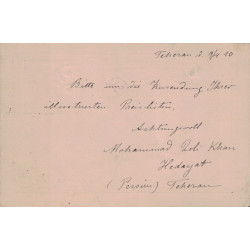 Teheran d. 9/4 10
Bitte um die Zusendung Ihrer
Musikwerken Preislisten.
Achtungsvoll
Mohammad Goli Khan
Hedayat
(Persien) Teheran